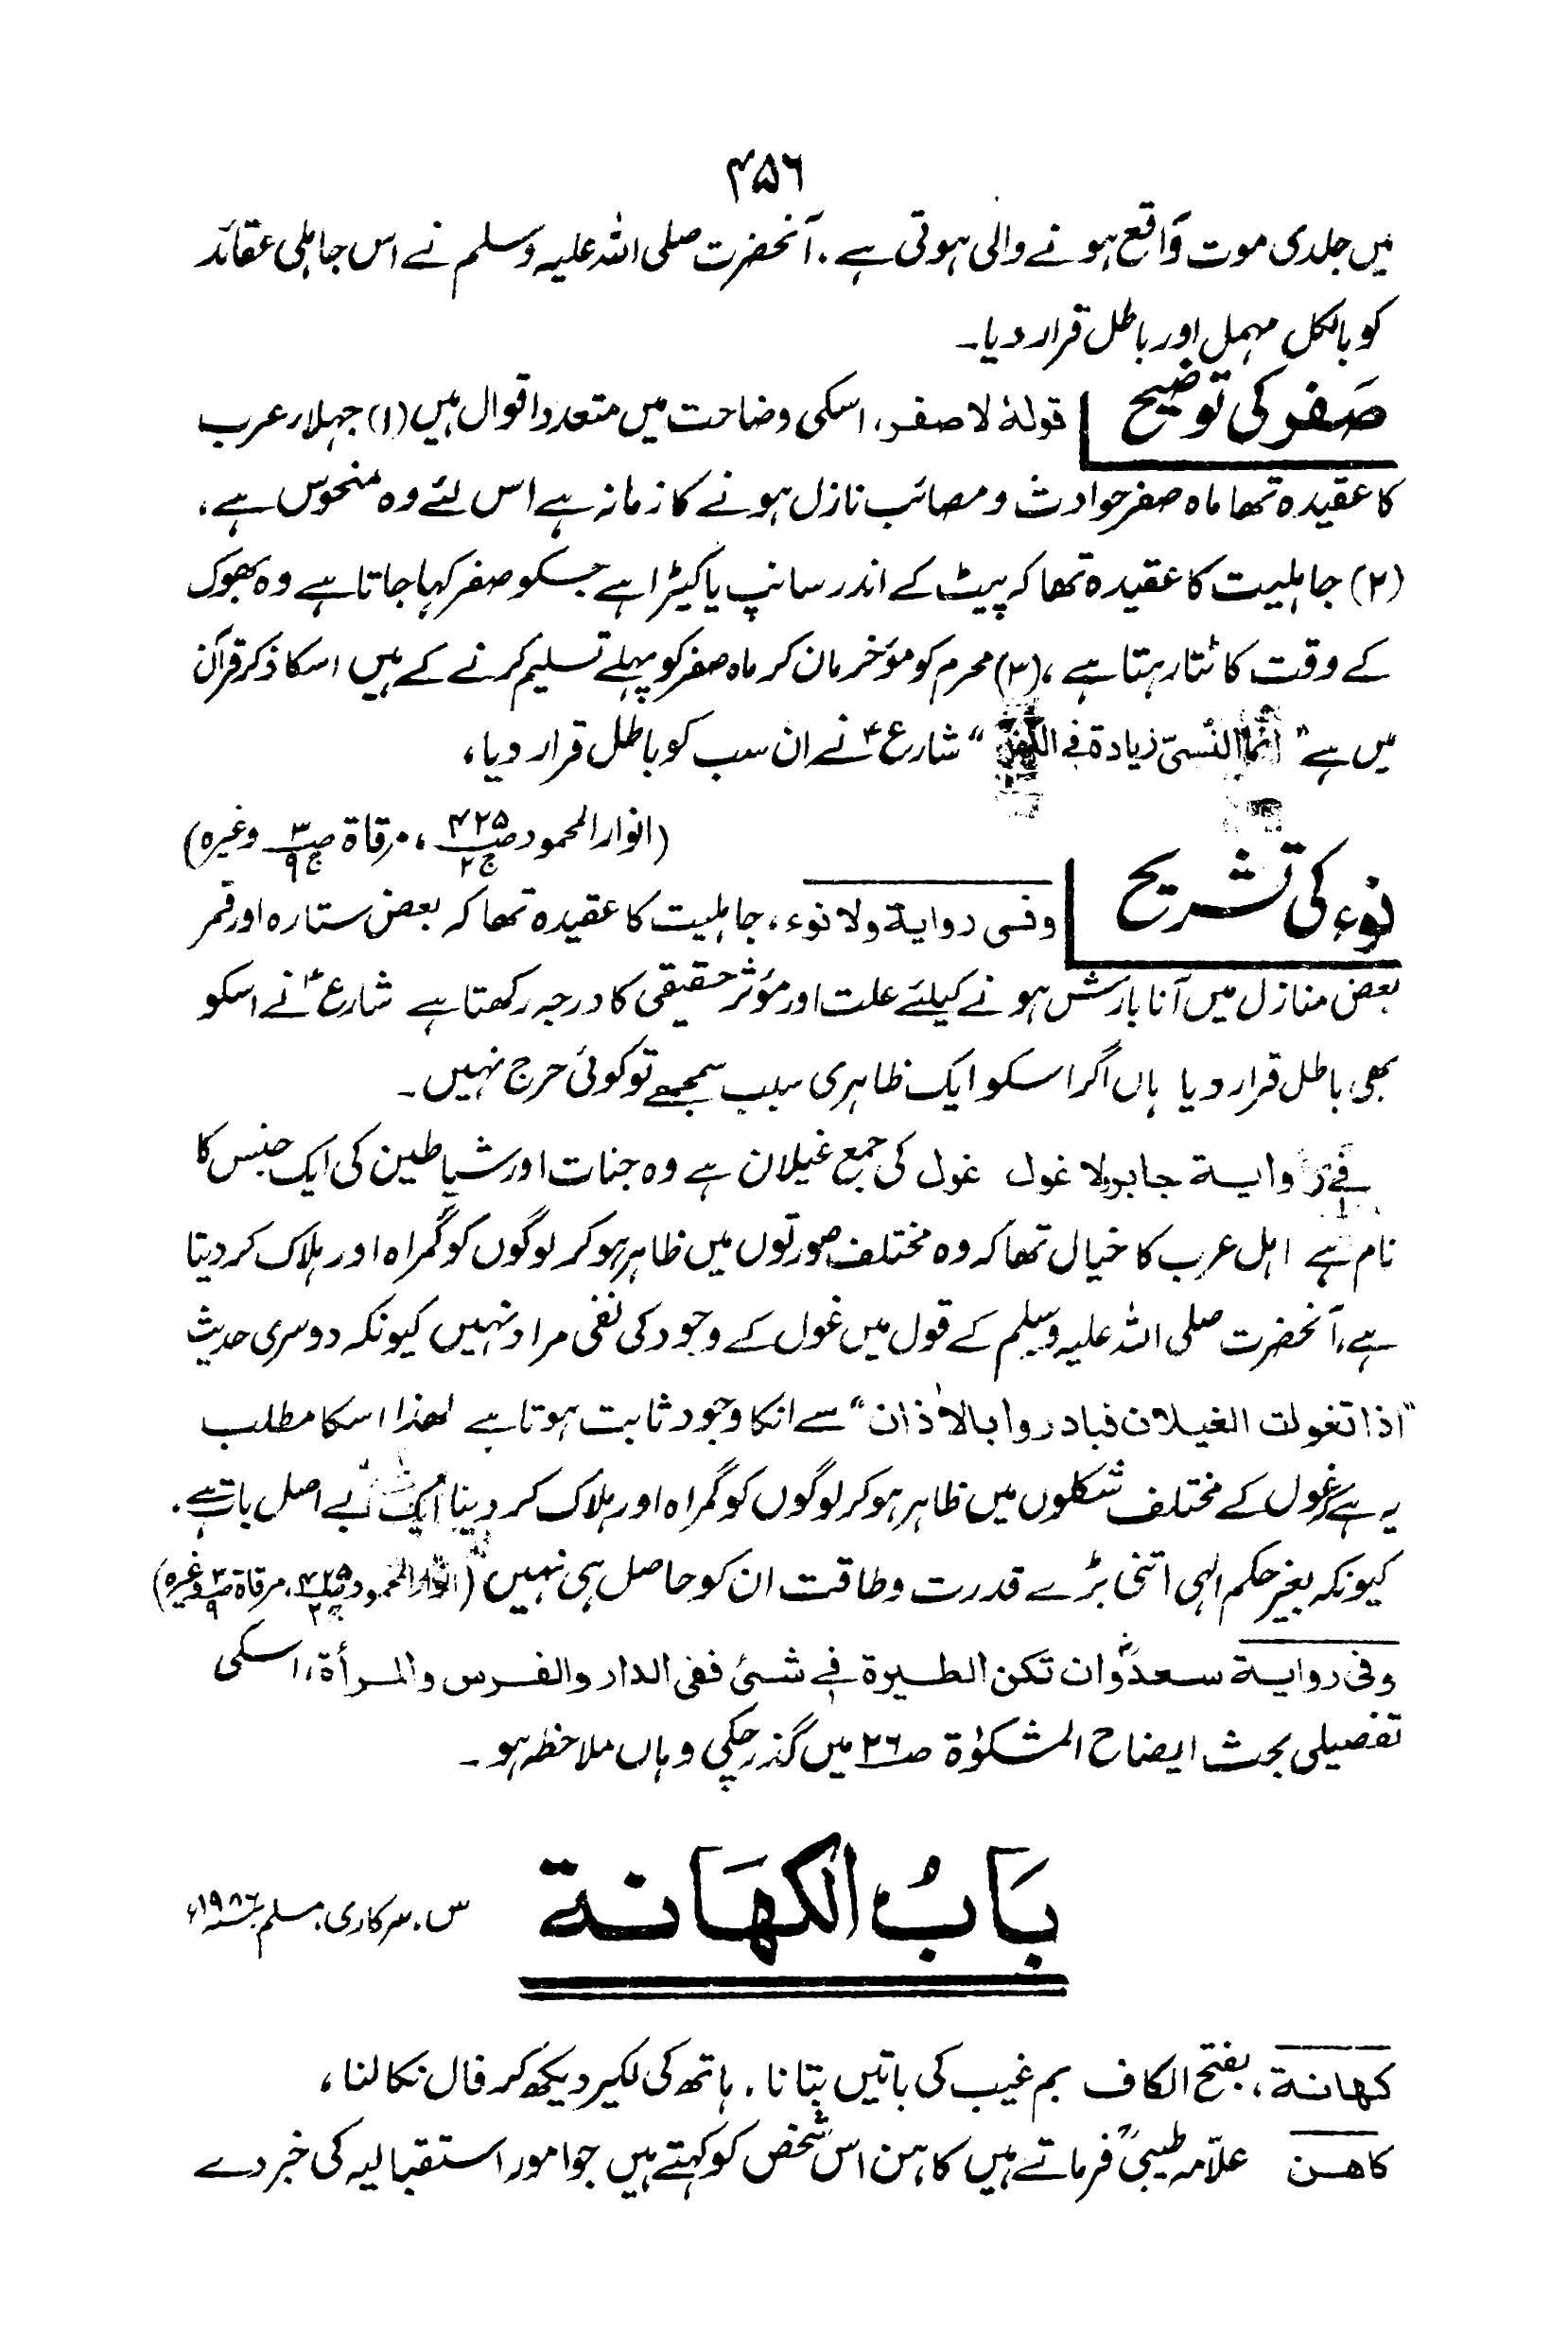 ۴۵۶
میں جلدی موت واقع ہونے والی ہوتی ہے۔ آنحضرت صلی اللہ علیہ وسلم نے اس جاہلی عقائد
کو بالکل مہمل اور باطل قرار دیا۔
صَفر کی توضیح قولہٗ لا صفر، اسکی وضاحت میں متعدد اقوال ہیں (۱) جہلاء عرب
کا عقیدہ تھا ماہ صفر حوادث و مصائب نازل ہونے کا زمانہ ہے اس لئے وہ منحوس ہے،
(۲) جاہلیت کا عقیدہ تھا کہ پیٹ کے اندر سانپ یا کیڑا ہے جسکو صفر کہا جاتا ہے وہ بھوک
کے وقت کاٹتا رہتا ہے، (۳) محرم کو مؤخر مان کر ماہ صفر کو پہلے تسلیم کرنے کے ہیں اسکا ذکر قرآن
میں ہے "انما النسیّ زیادة فی الکفر" شارعؑ نے ان سب کو باطل قرار دیا،
(انوار المحمود ص۴۲۵ ج۲، مرقاة ص۳ ج۹ وغیرہ)
نوء کی تشریح وفی روایة ولا نوء، جاہلیت کا عقیدہ تھا کہ بعض ستارہ اور قمر
بعض منازل میں آنا بارش ہونے کیلئے علت اور مؤثر حقیقی کا درجہ رکھتا ہے شارعؑ نے اسکو
بھی باطل قرار دیا ہاں اگر اسکو ایک ظاہری سبب سمجھے تو کوئی حرج نہیں۔
فی روایة جابر لا غول غول کی جمع غیلان ہے وہ جنات اور شیاطین کی ایک جنس کا
نام ہے اہل عرب کا خیال تھا کہ وہ مختلف صورتوں میں ظاہر ہوکر لوگوں کو گمراہ اور ہلاک کر دیتا
ہے، آنحضرت صلی اللہ علیہ وسلم کے قول میں غول کے وجود کی نفی مراد نہیں کیونکہ دوسری حدیث
"اذا تغولت الغیلان فبادروا بالاذان" سے انکا وجود ثابت ہوتا ہے لھٰذا اسکا مطلب
یہ ہے کہ غول کے مختلف شکلوں میں ظاہر ہوکر لوگوں کو گمراہ اور ہلاک کر دینا ایک بے اصل بات ہے۔
کیونکہ بغیر حکم الٰہی اتنی بڑے قدرت وطاقت ان کو حاصل ہی نہیں (انوار المحمود ص۴۲۵ ج۲، مرقاة ص۳ ج۹ وغیرہ)
وفی روایة سعدؓ وان تکن الطیرة فی شیٔ ففی الدار والفرس والمرأة، اسکی
تفصیلی بحث ایضاح المشکوٰة ص۲۶ میں گذر چکی وہاں ملاحظہ ہو۔
بَابُ الکھَانة س، سرکاری، مسلم سنہ ۱۹۸۶ء
کھانة، بفتح الکاف بم غیب کی باتیں بتانا۔ ہاتھ کی لکیر دیکھ کر فال نکالنا،
کاھن علّامہ طیبیؒ فرماتے ہیں کاہن اس شخص کو کہتے ہیں جو امور استقبالیہ کی خبر دے